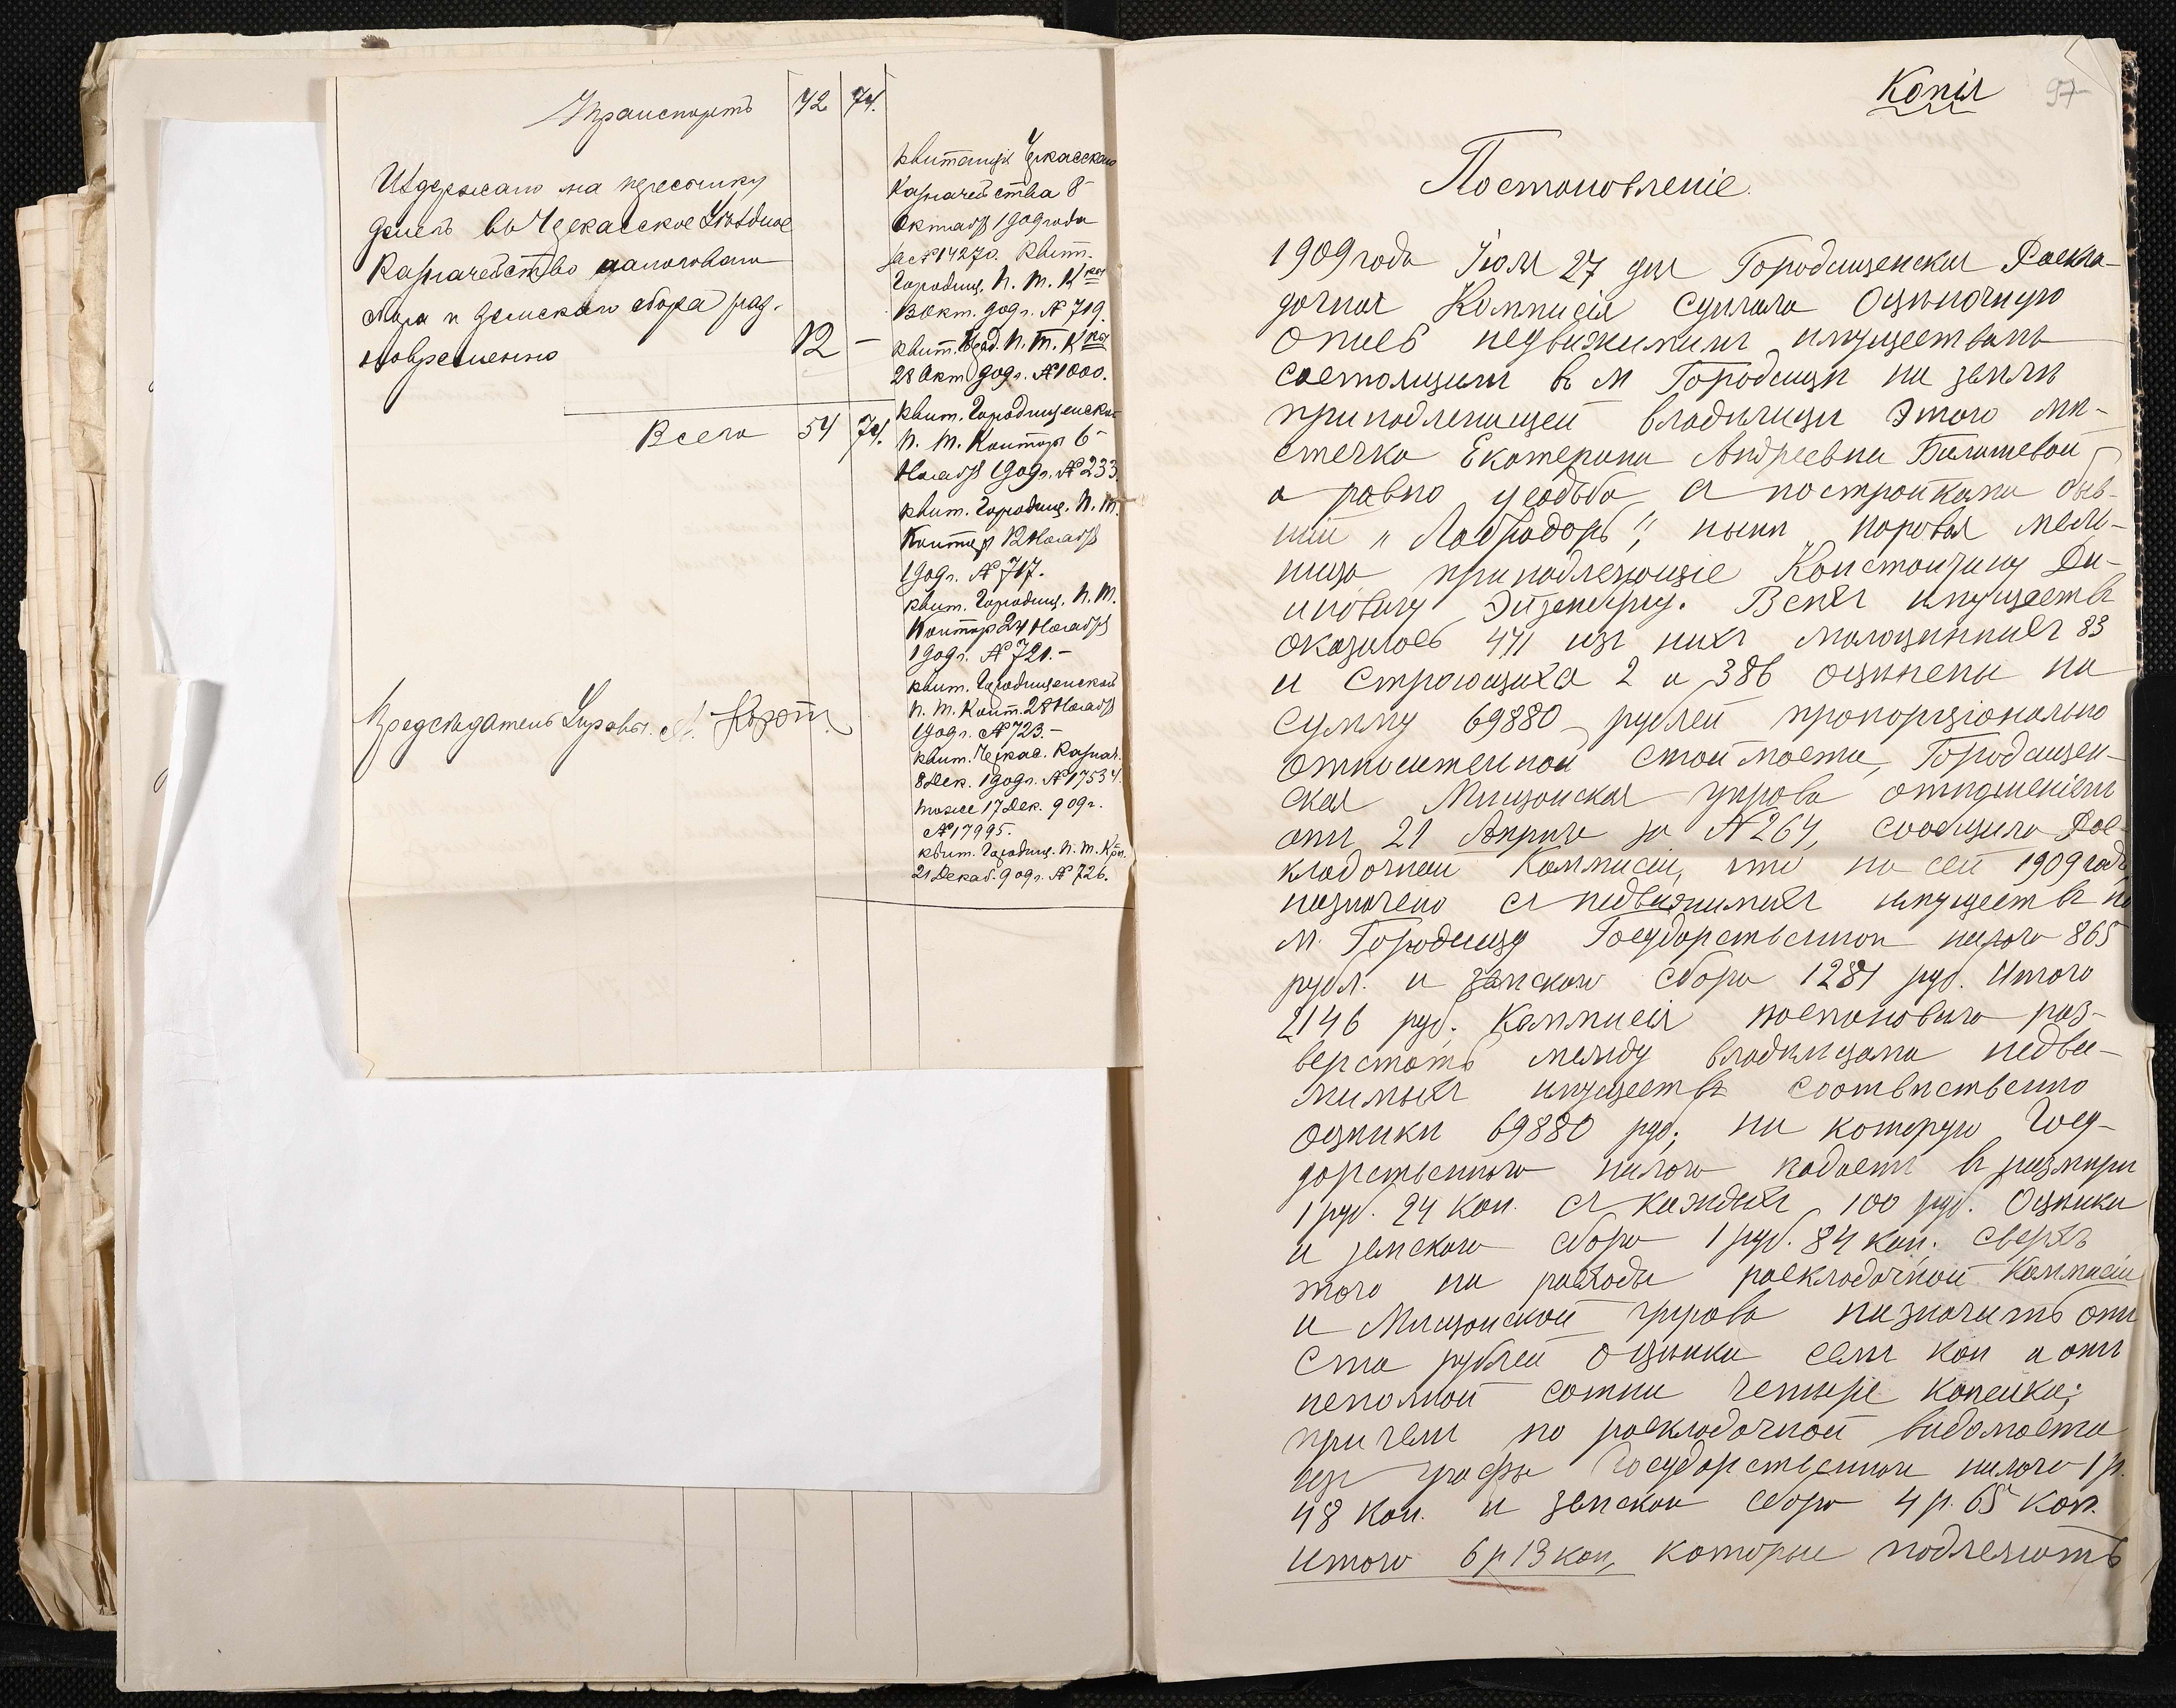 Транспортъ 42 74.
Издержано на пересылку
денегъ въ Черкасское Уѣздное
Казначейство налоговаго
сбора и земскаго сбора раз-
новременно 12 –
Всего 54 74.
Предсѣдатель Управы.
квитанція Черкасскаго
Казначейства 8
Октября 1909 года
за № 14270. Квит.
Городищ. П. Т. К ры
13 Окт. 909 г. № 719.
квит. Город. П. Т. К ры
28 Окт 909 г. № 1000.
квит. Городищенской
П. Т. Конторы 6
Ноября 1909 г. № 233.
квит. Городищ. П. Т.
Конторы 12 Ноября
1909 г. № 717.
квит. Городищ. П. Т.
Конторы 24 Ноября
1909 г. № 721.–
квит. Городищенской
П. Т. Конт. 28 Ноября
1909 г. № 723.–
квит. Черкас. Казнач.
8 Дек. 1909 г. № 17534.
тоже 17 Дек. 909 г.
№ 17995.
квит. Городищ. П. Т. К ры
21 Декаб. 909 г. № 726.
Копія 97
Постоновленіе.
1909 года Іюля 27 дня Городищенская Раскла-
дочная Коммисія Оцѣночную
опись недвижимымъ имуществамъ
состоящимъ в м Городищи на земли
приподлежащей владилици этого ми-
стечка Екатерины Андреевны Балашевой
а равно усадьба съ постройками быв-
ший „Лабрадоръ“, ныни паровая мель-
ница приподлежащіе Константину Да-
ниловичу. Всѣхъ имуществъ
оказалось 471 изъ нихъ малоценныхъ 83
и строющихся 2 и 386 оцѣнены на
сумму 69880 рублей пропорціонально
относительной стоимости, Городищен-
ская Мищанская управа отношеніемъ
отъ 21 Априля за № 264, сообщила Рас-
кладочной Коммисіи, что на сей 1909 годъ
назначено съ недвижимыхъ имуществъ по
м. Городищу Государственнаго налога 865
рубл. и земскаго сбора 1281 руб. Итого
2146 руб. Коммисія постановила раз-
верстать между владилицами недви-
жимыхъ имуществъ соотвитственно
оцинки 69880 руб; на которую Госу-
дарственнаго налога падаетъ въ размири
1 руб. 24 коп. съ каждыхъ 100 руб. Оцинки
и земскаго сбора 1 руб. 84 коп. сверхъ
того на расходы раскладочной Коммисіи
и Мищанской управы назначить отъ
ста рублей оцинки семь коп и отъ
неполной сотни четыре копейки;
при чемъ по раскладочной видомости
изъ графы Государственнаго налога 1 р.
48 коп. и земскаго сбора 4 р. 65 коп.
итого 6 р 13 коп, которые подлежатъ